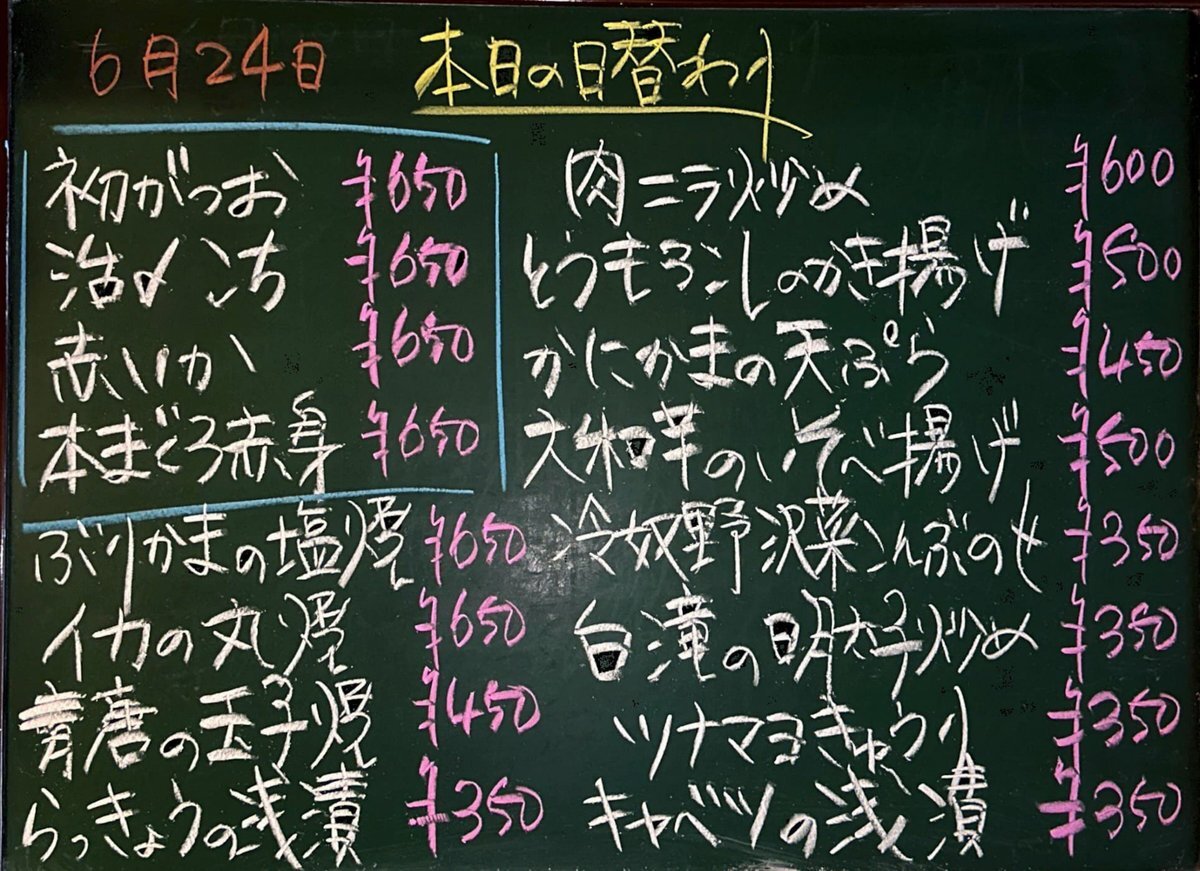 6月24日 本日の日替わり
初がつお ¥650
活〆こち ¥650
赤いか ¥650
本まぐろ赤身 ¥650
ぶりかまの塩焼 ¥650
イカの丸焼 ¥650
青唐の玉子焼 ¥450
らっきょうの浅漬 ¥350
肉ニラ炒め ¥600
とうもろこしのかき揚げ ¥500
かにかまの天ぷら ¥450
大和芋のいそべ揚げ ¥500
冷奴野沢菜こんぶのせ ¥350
白滝の明太子炒め ¥350
ツナマヨきゅうり ¥350
キャベツの浅漬 ¥350